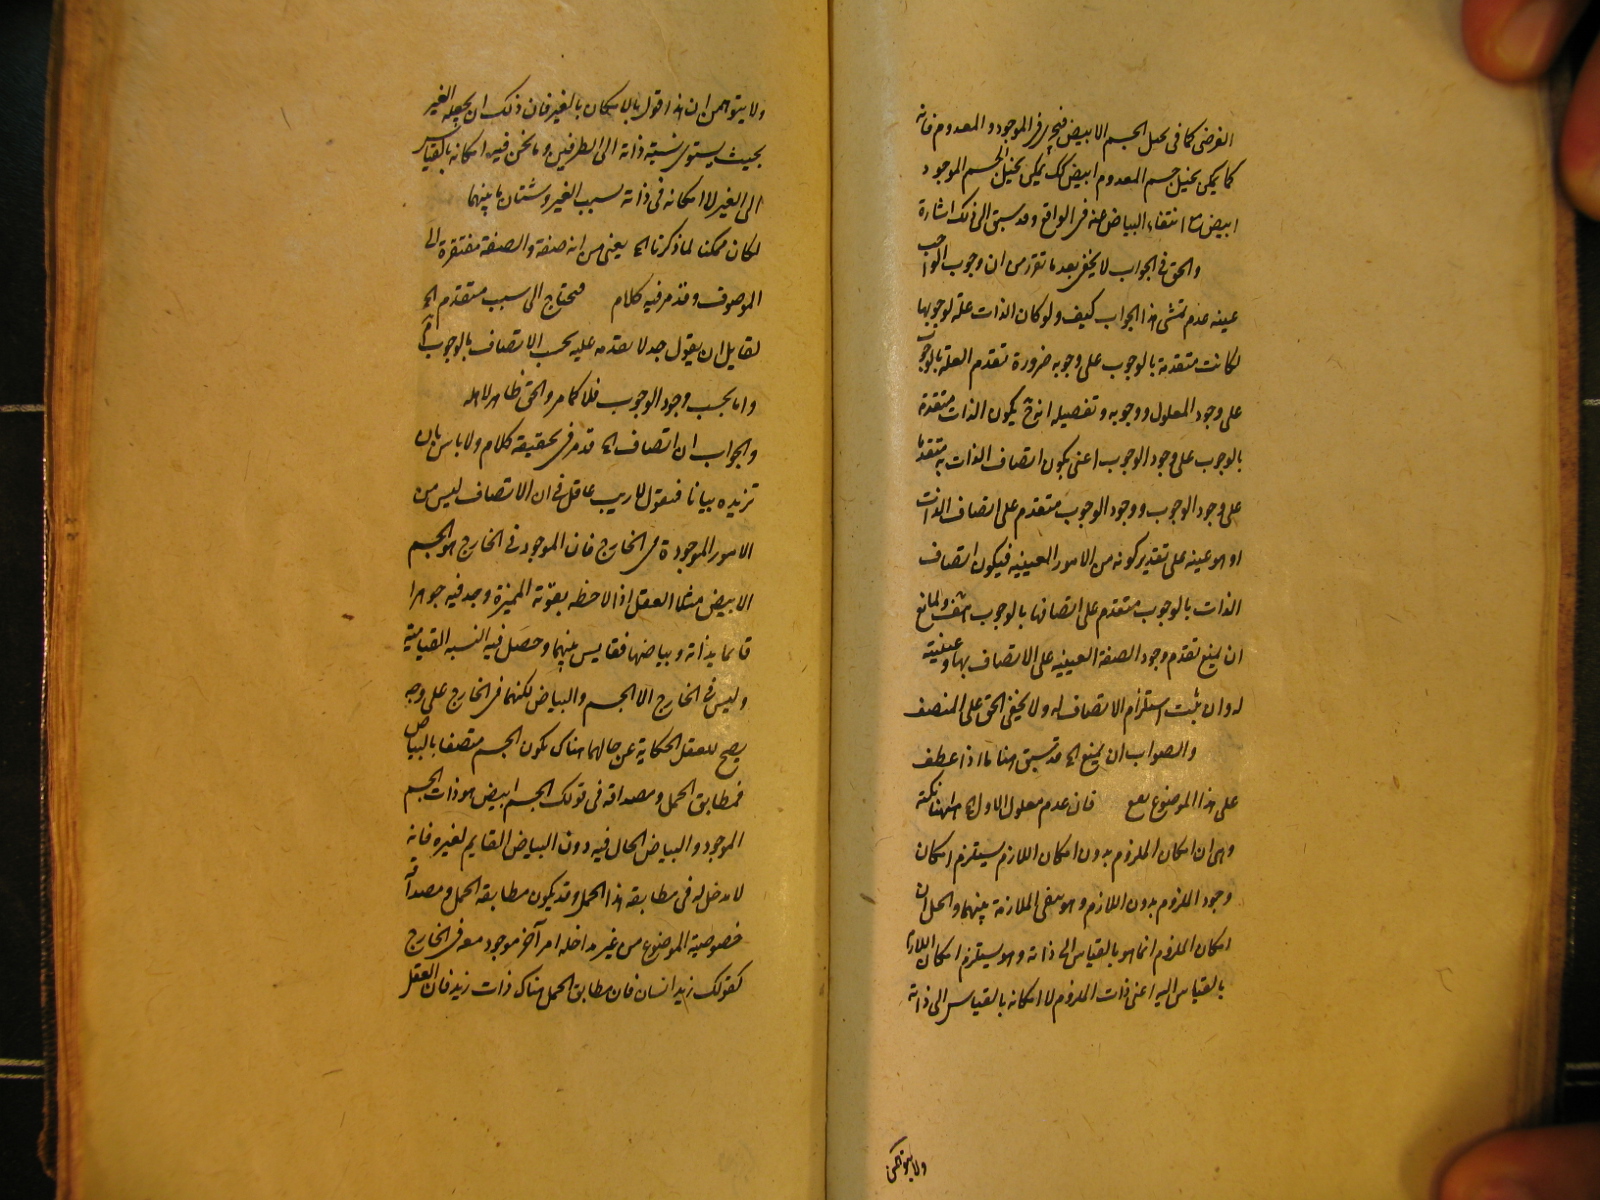 الفرضى كما فى تخيل الجسم الابيض فيجرى فى الموجود والمعدوم فانه
كما يمكن تخيل جسم المعدوم ابيض كك يمكن تخيل الجسم الموجود
ابيض مع انتفاء البياض عنه فى الواقع وقد سبق الى ذلك اشارة
والحق فى الجواب لا يخفى بعد ما تقرر من ان وجوب الواجب
عينه عدم تمشى هذا الجواب كيف ولو كان الذات علة لوجوبها
لكانت متقدمة بالوجوب على وجوبه ضرورة تقدم العلة بالوجوب
على وجود المعلول ووجوبه وتفصيله انه ح يكون الذات متقدمة
بالوجوب على وجود الوجوب اعنى يكون اتصاف الذات به متقدما
على وجود الوجوب ووجود الوجوب متقدم على اتصاف الذات
او هو عينه على تقدير كونه من الامور العينيه فيكون اتصاف
الذات بالوجوب متقدم على اتصافها بالوجوب هف ولمانع
ان يمنع تقدم وجود الصفة العينيه على الاتصاف بها وعينيته
له وان ثبت استلزام الاتصاف له ولا يخفى الحق على المنصف
والصواب ان يمنع الخ قد سبق منا ما اذا عطف
على هذا الموضوع فان عدم معلول الاول الخ ههنا نكتة
وهى ان امكان الملزوم بدون امكان اللازم يستلزم امكان
وجود الملزوم بدون اللازم وهو ينفى الملازمة بينهما والحل ان
امكان الملزوم انما هو بالقياس الى ذاته وهو يستلزم امكان اللازم
بالقياس اليه اعنى ذات الملزوم لا امكانه بالقياس الى ذاته
ولا يتوهمن
ولا يتوهمن ان هذا قول بالامكان بالغير فان ذلك ان يجعله الغير
بحيث يستوى نسبة ذاته الى الطرفين وما نحن فيه امكانه بالقياس
الى الغير لا امكانه فى ذاته بسبب الغير وشتان ما بينهما
لكان ممكنا لما ذكرنا الخ يعنى من انه صفة والصفة مفتقرة الى
الموصوف وقد مر فيه كلام فيحتاج الى سبب متقدم الخ
لقايل ان يقول تقدمه عليه بحسب الاتصاف بالوجوب
واما بحسب وجود الوجوب فلا كما مر والحق ظاهر لاهله
والجواب ان اتصاف الخ قد مر فى تحقيقه كلام ولا باس بان
نزيده بيانا فنقول لا ريب عاقل فى ان الاتصاف ليس من
الامور الموجودة فى الخارج فان الموجود فى الخارج هو الجسم
الابيض مثلا العقل اذا لاحظه بقوته المميزة وجد فيه جوهرا
قائما بذاته وبياضها فقايس بينهما وحصل فيه النسبه القيامية
وليس فى الخارج الا الجسم والبياض لكنهما فى الخارج على وجه
يصح للعقل الحكاية عن حالهما هناك بكون الجسم متصفا بالبياض
فمطابق الحمل ومصداقه فى قولك الجسم ابيض هو ذات الجسم
الموجود والبياض الحال فيه دون البياض القايم لغيره فانه
لا مدخل له فى مطابقه هذا الحمل وقد يكون مطابقه الحمل ومصداقه
خصوصية الموضوع من غير مداخله امر آخر موجود معه فى الخارج
كقولك زيد انسان فان مطابق الحمل هناك ذات زيد فان العقل